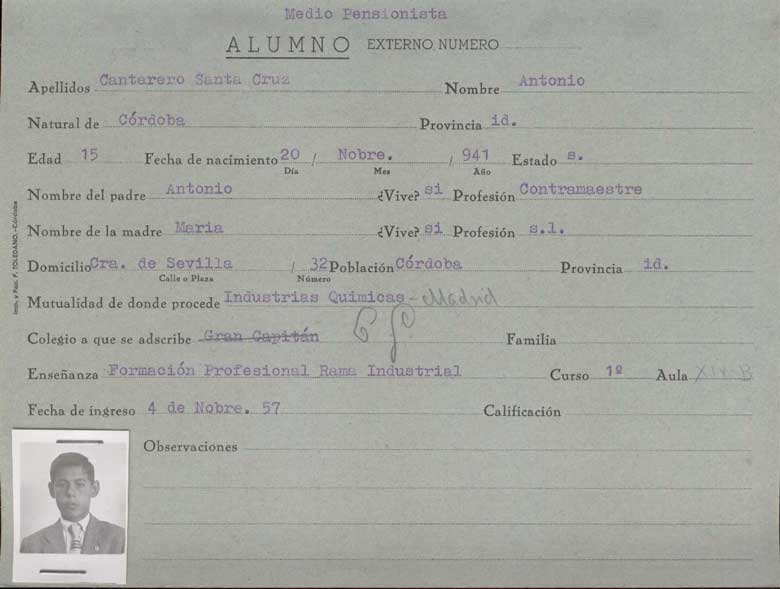 Medio Pensionista
ALUMNO EXTERNO, NUMERO
Apellidos Canterero Santa Cruz Nombre Antonio
Natural de Córdoba Provincia id.
Edad 15 Fecha de nacimiento 20 / Nobre. / 941 Estado s.
Día Mes Año
Nombre del padre Antonio ¿Vive? si Profesión Contramaestre
Nombre de la madre Maria ¿Vive? si Profesión s.l.
Domicilio Cra. de Sevilla / 32 Población Córdoba Provincia id.
Calle o Plaza Número
Mutualidad de donde procede Industrias Quimicas - Madrid
Colegio a que se adscribe Gran Capitán Familia
Enseñanza Formación Profesional Rama Industrial Curso 1º Aula XIV-B
Fecha de ingreso 4 de Nobre. 57 Calificación
Observaciones
Imp. y Pap. F. TOLEDANO.-Córdoba